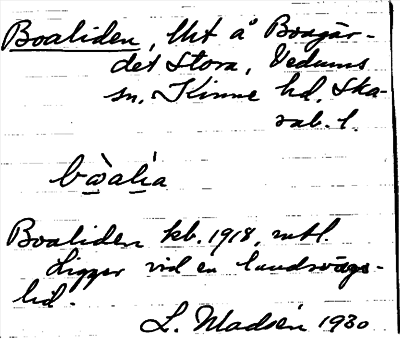 Boaliden, lht å Boagär-
det Stora, Vedums
sn, Kinne hd. Ska-
rab. l.
bωalia
Boaliden kb. 1918, mtl.
Ligger vid en landsvägs-
lid.
L. Madsén 1930